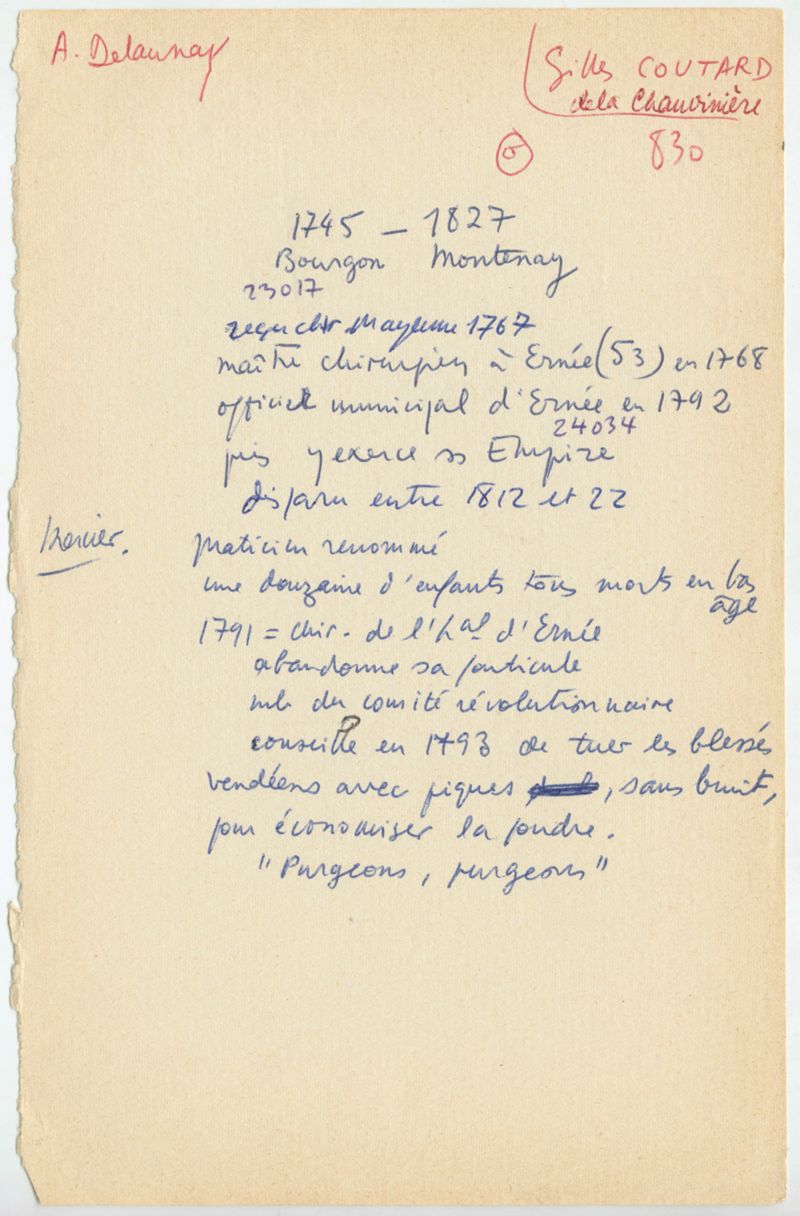 A. Delaunay
Gilles COUTARD
de la Chauvinière
830
1745 – 1827
Bourgon Montenay
23017
reçu chir. Mayenne 1767
maître chirurgien à Ernée (53) en 1768
officier municipal d'Ernée en 1792
24034
puis y exerce ss Empire
disparu entre 1812 et 22
praticien renommé
une douzaine d'enfants tous morts en bas
âge
1791 = chir. de l'hal d'Ernée
abandonne sa particule
mb. du comité révolutionnaire
conseille en 1793 de tuer les blessés
vendéens avec piques, sans bruit,
pour économiser la poudre.
"Purgeons, purgeons"